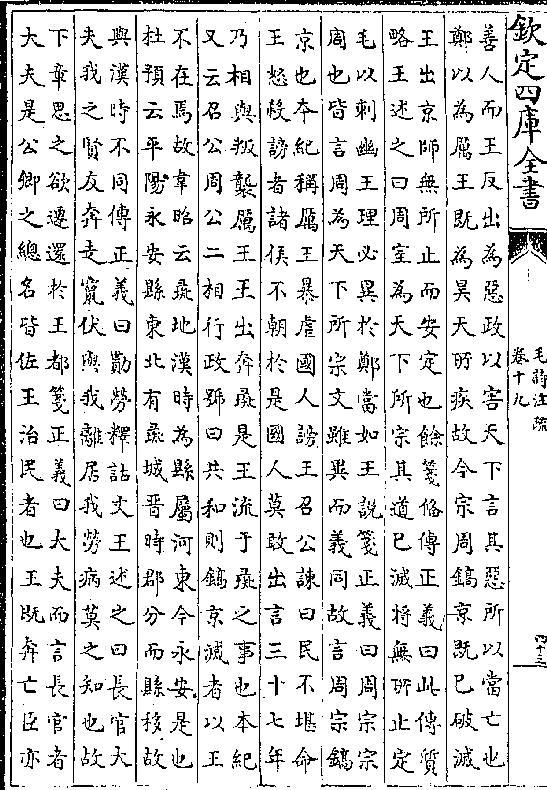 欽定四庫全書
毛詩注疏
卷十九
四十三
善人而王反出為惡政以害天下言其惡所以當亡也
鄭以為厲王既為昊天所疾故今宗周鎬京既已破滅
王出京師無所止而安定也餘箋俻傳正義曰此傳質
略王述之曰周室為天下所宗其道已滅將無所止定
毛以刺幽王理必異於鄭當如王說箋正義曰周宗宗
周也皆言周為天下所宗文雖異而義同故言周宗鎬
京也本紀稱厲王暴虐國人謗王召公諫曰民不堪命
王怒殺謗者諸侯不朝於是國人莫敢出言三十七年
乃相與叛襲厲王王出奔彘是王流于彘之事也本紀
又云召公周公二相行政號曰共和則鎬京滅者以王
不在焉故韋昭云彘地漢時為縣屬河東今永安是也
杜預云平陽永安縣東北有彘城晋時郡分而縣移故
與漢時不同傳正義曰勩勞釋詁文王述之曰長官大
夫我之賢友奔走竄伏與我離居我勞病莫之知也故
下章思之欲遷還於王都箋正義曰大夫而言長官者
大夫是公卿之總名皆佐王治民者也王既奔亡臣亦